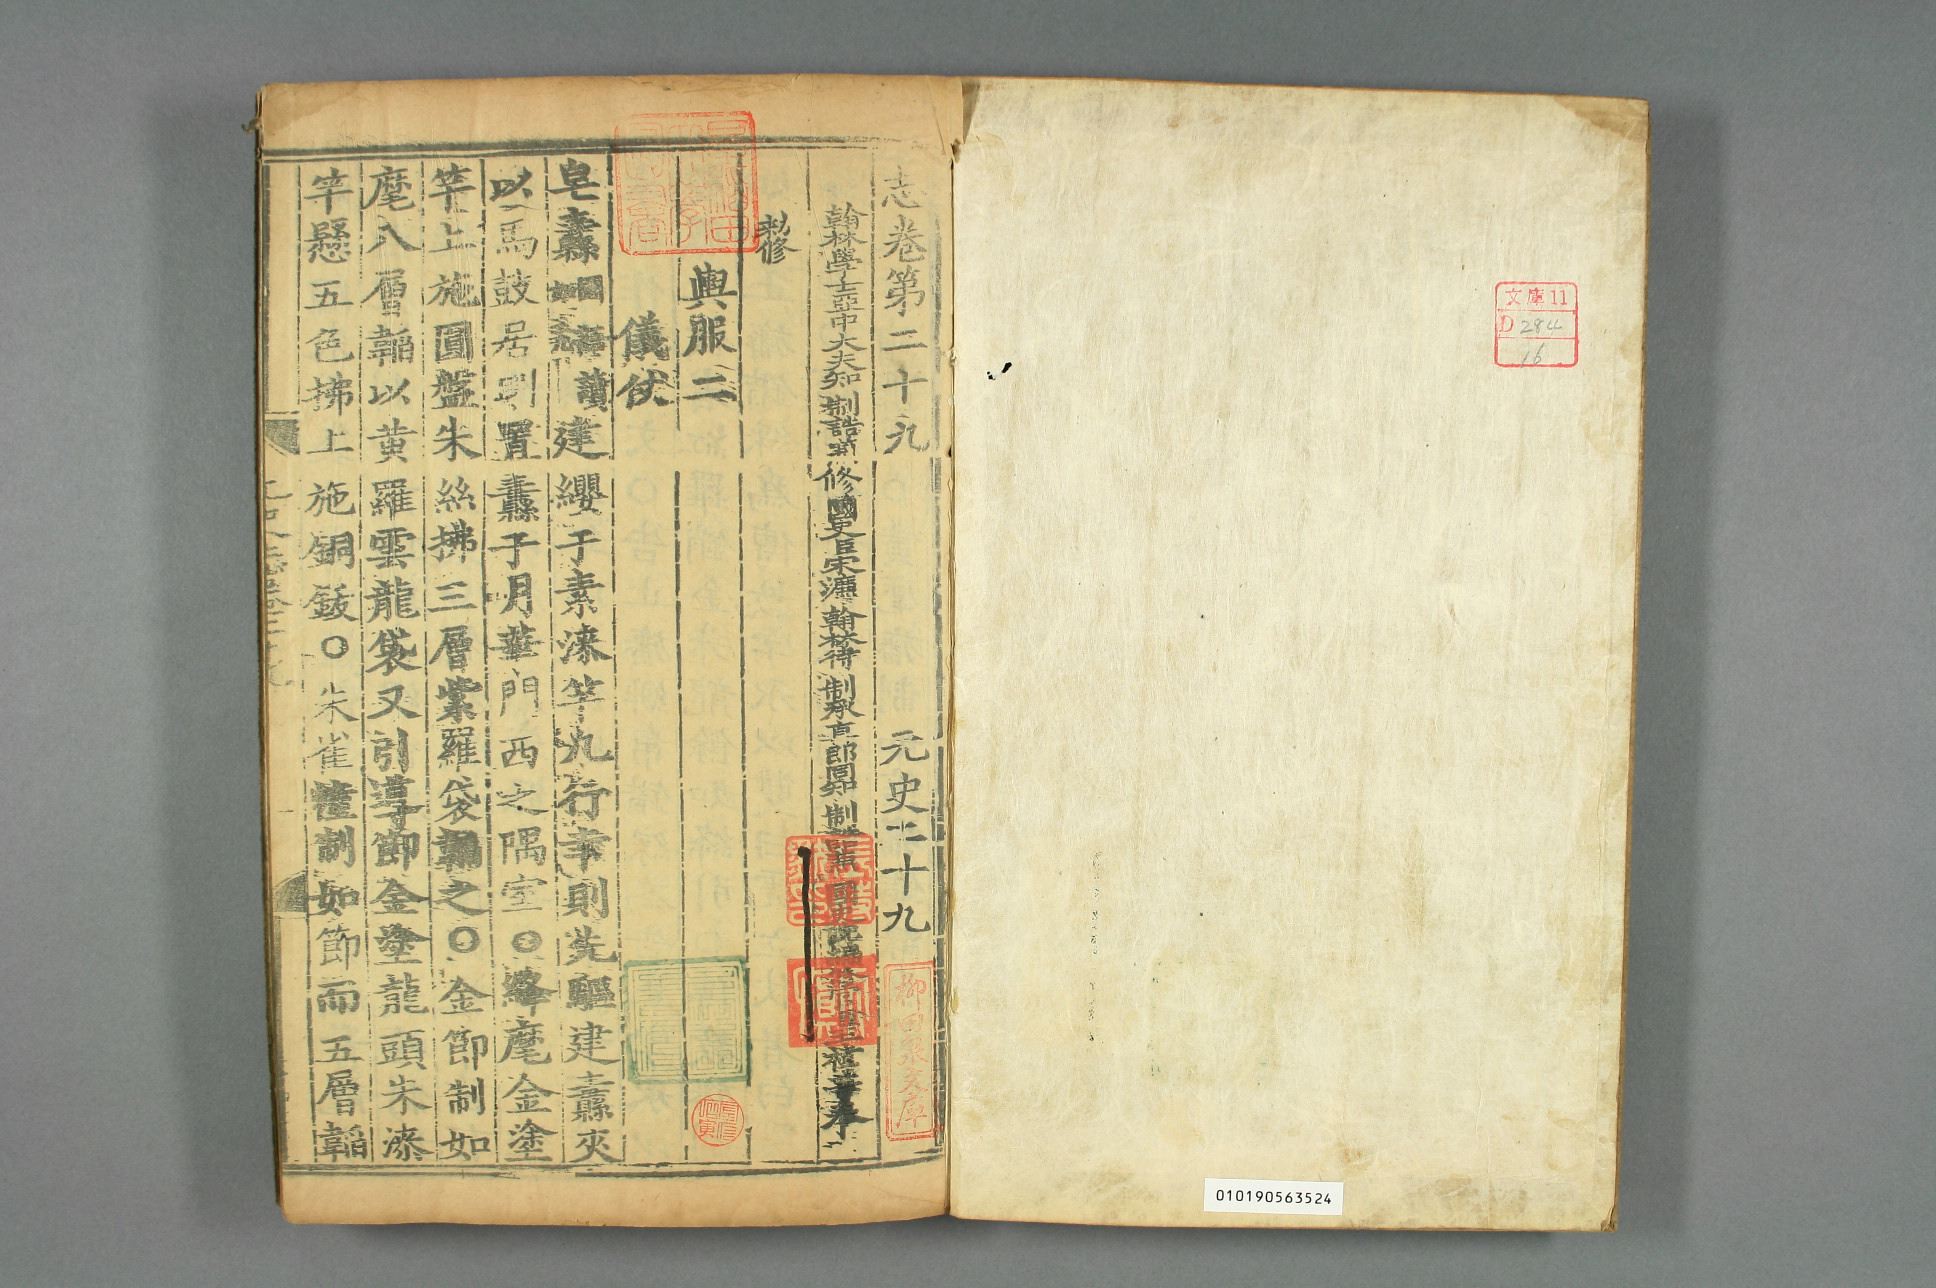 文庫11
D 284
16
010190563524
志卷第二十九 元史二十九
翰林學士亞中大夫知制誥兼修國史臣宋濂翰林待制承直郎同知制誥兼國史院編
勑修
輿服二
儀仗
皂纛建纓于素漆竿凡行幸則先驅建纛夾
以馬鼓居則置纛于月華門西之隅室○絳麾金塗
竿上施圓盤朱絲拂三層紫羅袋韜之○金節制如
麾八層韜以黄羅雲龍袋又引導節金塗龍頭朱漆
竿懸五色拂上施銅鈸○朱雀幢制如節而五層韜
柳田泉文庫